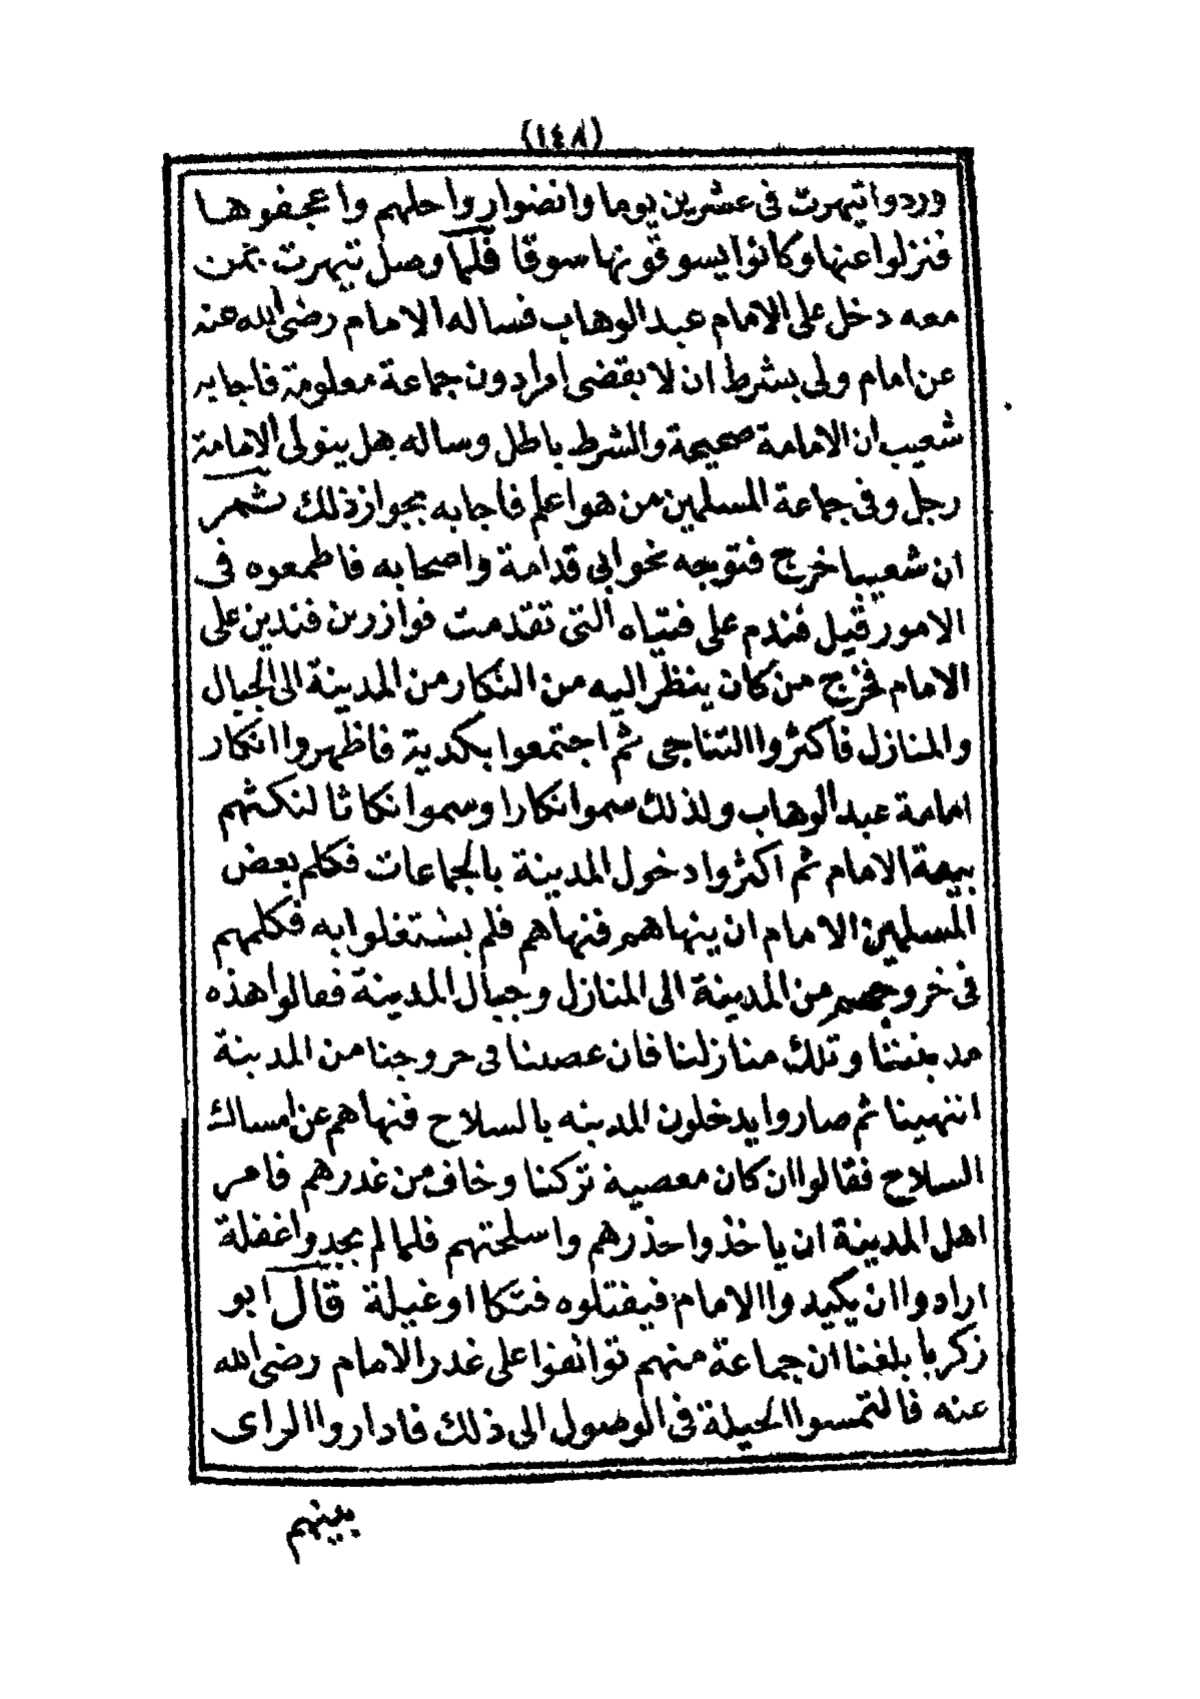 (١٤٨)
وردوا تيهرت فى عشرين يوما وانضوا رواحلهم واعجفوها
فنزلوا عنها وكانوا يسوقونها سوقا فلما وصل تيهرت بمن
معه دخل على الامام عبد الوهاب فساله الامام رضى الله عنه
عن امام ولى بشرط ان لا يقضى امرا دون جماعة معلومة فاجابه
شعيب ان الامامة صحيحة والشرط باطل وساله هل يتولى الامامة
رجل وفى جماعة المسلمين من هو اعلم فاجابه بجواز ذلك ثم
ان شعيبا خرج فتوجه نحو ابى قدامة واصحابه فاطمعوه فى
الامور قيل فندم على فتياه التى تقدمت فوازر بن فندين على
الامام فخرج من كان ينظر اليه من النكار من المدينة الى الجبال
والمنازل فاكثروا التناجى ثم اجتمعوا بكدية فاظهروا انكار
امامة عبد الوهاب ولذلك سموا نكارا وسموا نكاثا لنكثهم
بيعة الامام ثم اكثروا دخول المدينة بالجماعات فكلم بعض
المسلمين الامام ان ينهاهم فنهاهم فلم يشتغلوا به فكلمهم
فى خروجهم من المدينة الى المنازل وجبال المدينة فقالوا هذه
مدينتنا وتلك منازلنا فان عصينا فى خروجنا من المدينة
انتهينا ثم صاروا يدخلون المدينه بالسلاح فنهاهم عن امساك
السلاح فقالوا ان كان معصية تركنا وخاف من غدرهم فامر
اهل المدينة ان ياخذوا حذرهم واسلحتهم فلما لم يجدوا غفلة
ارادوا ان يكيدوا الامام فيفتلوه فتكا او غيلة قال ابو
زكريا بلغنا ان جماعة منهم توانفوا على غدر الامام رضى الله
عنه فالتمسوا الحيلة فى الوصول الى ذلك فاداروا الراى
بينهم